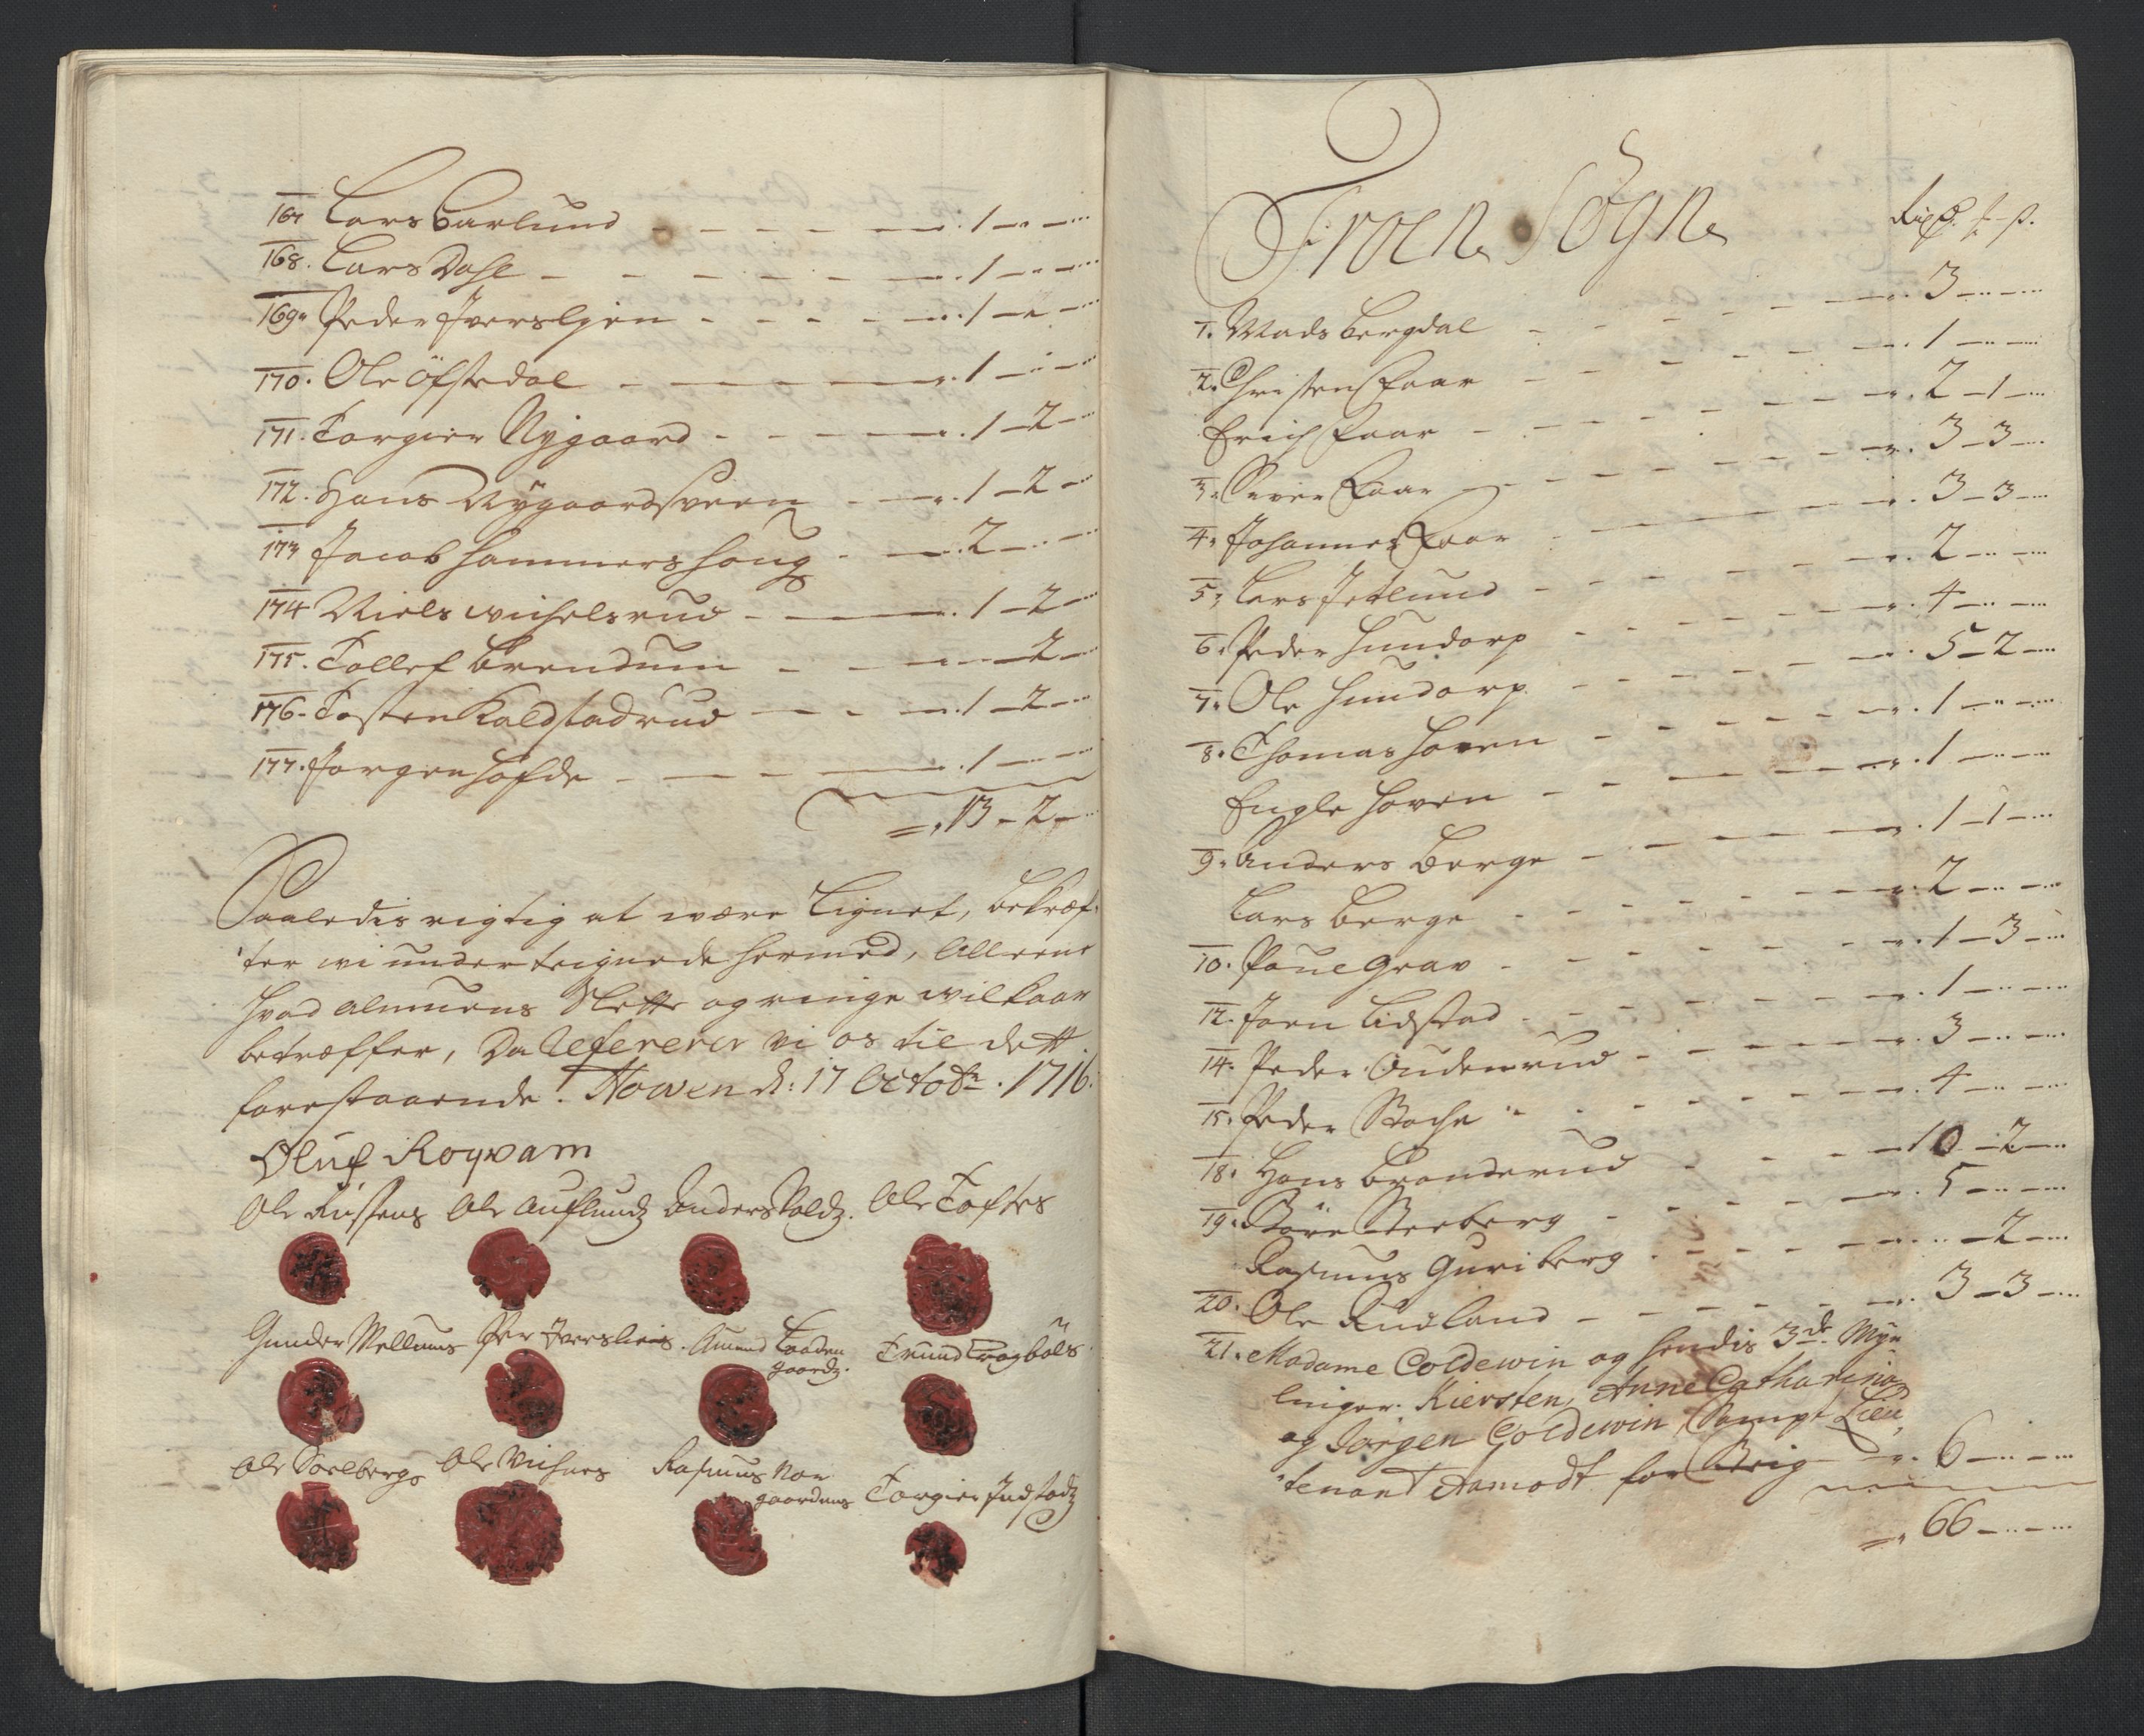 167 Lars Barlund — — — — — 1 — —
168. Lars Dahl — — — — — 1 — —
169. Peder Iverslyen — — — — 1 — —
170. Ole Öfstedal — — — — 1 — —
171. Torgier Nygaard — — — 1 — 2 —
172. Hans Nÿgaardsveen — — 1 — 2 —
173 Jacob Hammershoug — — 2 — —
174 Niels Michelsrud — — 1 — 2 —
175. Tollef Brendum — — — 2 —
176. Tosten Kaldstadrud — — 1 — 2 —
177. Jørgen Høfde — — — 1 — —
= 13 — 2 —
Saaledis rigtig at være Lignet, bekræf-
ter wi underteignede hermed, Alleene
hvad almuens Slette og ringe wilkaar
betræffer, Da Refererer vi os til dett
forestaaende. Howen d: 17 Octobr. 1716.
Oluf Roqvam
Ole Ole Auflundz Anders Voldz. Ole Toftes
Gunder Mellums Per Iversliens. Amund Laaden
gaardz. Trund Fragböls
Ole Soelbergs Ole Rasmus Nor
gaardens Torgier Indstadz
Froen Sogn Rixd. f — s.
1. Mads Bergdal — — — 3 — —
2. Christen Faar — — — 1 — —
Erich Faar — — — 2 — 1 —
3. Siver Faar — — — 3 — 3 —
4. Johannes Faar — — — 3 — 3 —
5. Lars Jetlund — — — 2 — —
6. Peder Hundorp — — — 4 — —
7. Ole Hundorp — — — 5 — 2 —
8. Thomas Hoven — — — 1 — —
Engle Hoven — — — 1 — —
9. Anders Berge — — — 1 — 1 —
Lars Berge — — — 2 — —
10. Poul Grav — — — 1 — 3 —
12. Joen Lidstad — — — 1 — —
14. Peder Oudenrud — — — 3 — —
15. Peder Stoche — — — 4 — —
18. Hans Branderud — — — 10 — 2 —
19. Börre Steeberg — — — 5 — —
Rasmus Guriberg — — — 2 —
20. Ole Rudland — — — 3 — 3 —
21. Madame Coldewin og hendis 3de Myn
linger. Kiersten, Anne Catharina
og Jørgen Coldewin, Sampt Lieu,
tenant Aamodt for Steig — 6 — —
= 66 — —